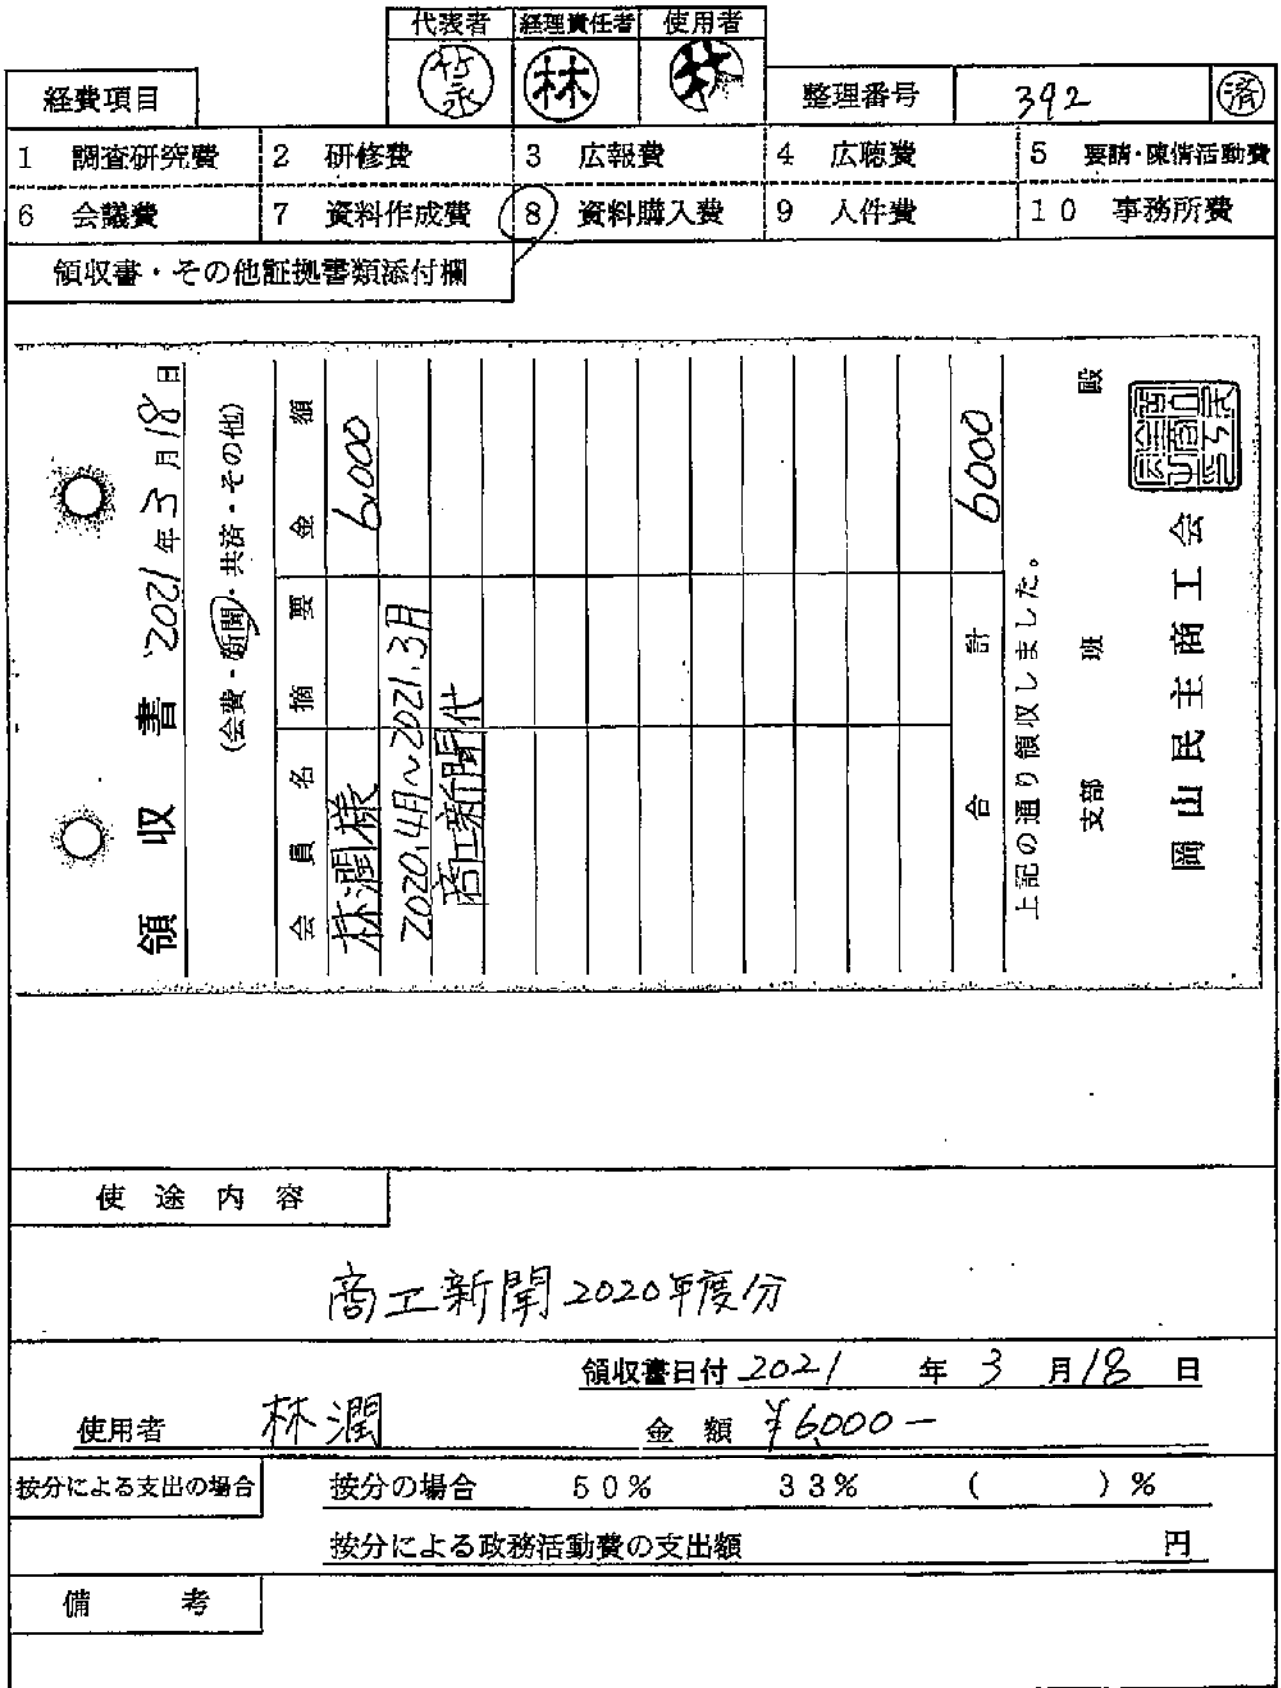 代表者 経理責任者 使用者
竹永 林 林
経費項目 整理番号 392 済
1 調査研究費 2 研修費 3 広報費 4 広聴費 5 要請・陳情活動費
6 会議費 7 資料作成費 8 資料購入費 9 人件費 10 事務所費
領収書・その他証拠書類添付欄
領収書 2021年3月18日
(会費・新聞・共済・その他)
会員名 摘要 金額
林潤様 6,000
2020.4月～2021.3月
商工新聞代
合計 6000
上記の通り領収しました。
支部 班 殿
岡山民主商工会
使途内容
商工新聞2020年度分
領収書日付 2021 年 3 月 18 日
使用者 林潤 金額 ¥6,000－
按分による支出の場合 按分の場合 50% 33% ( )%
按分による政務活動費の支出額 円
備考